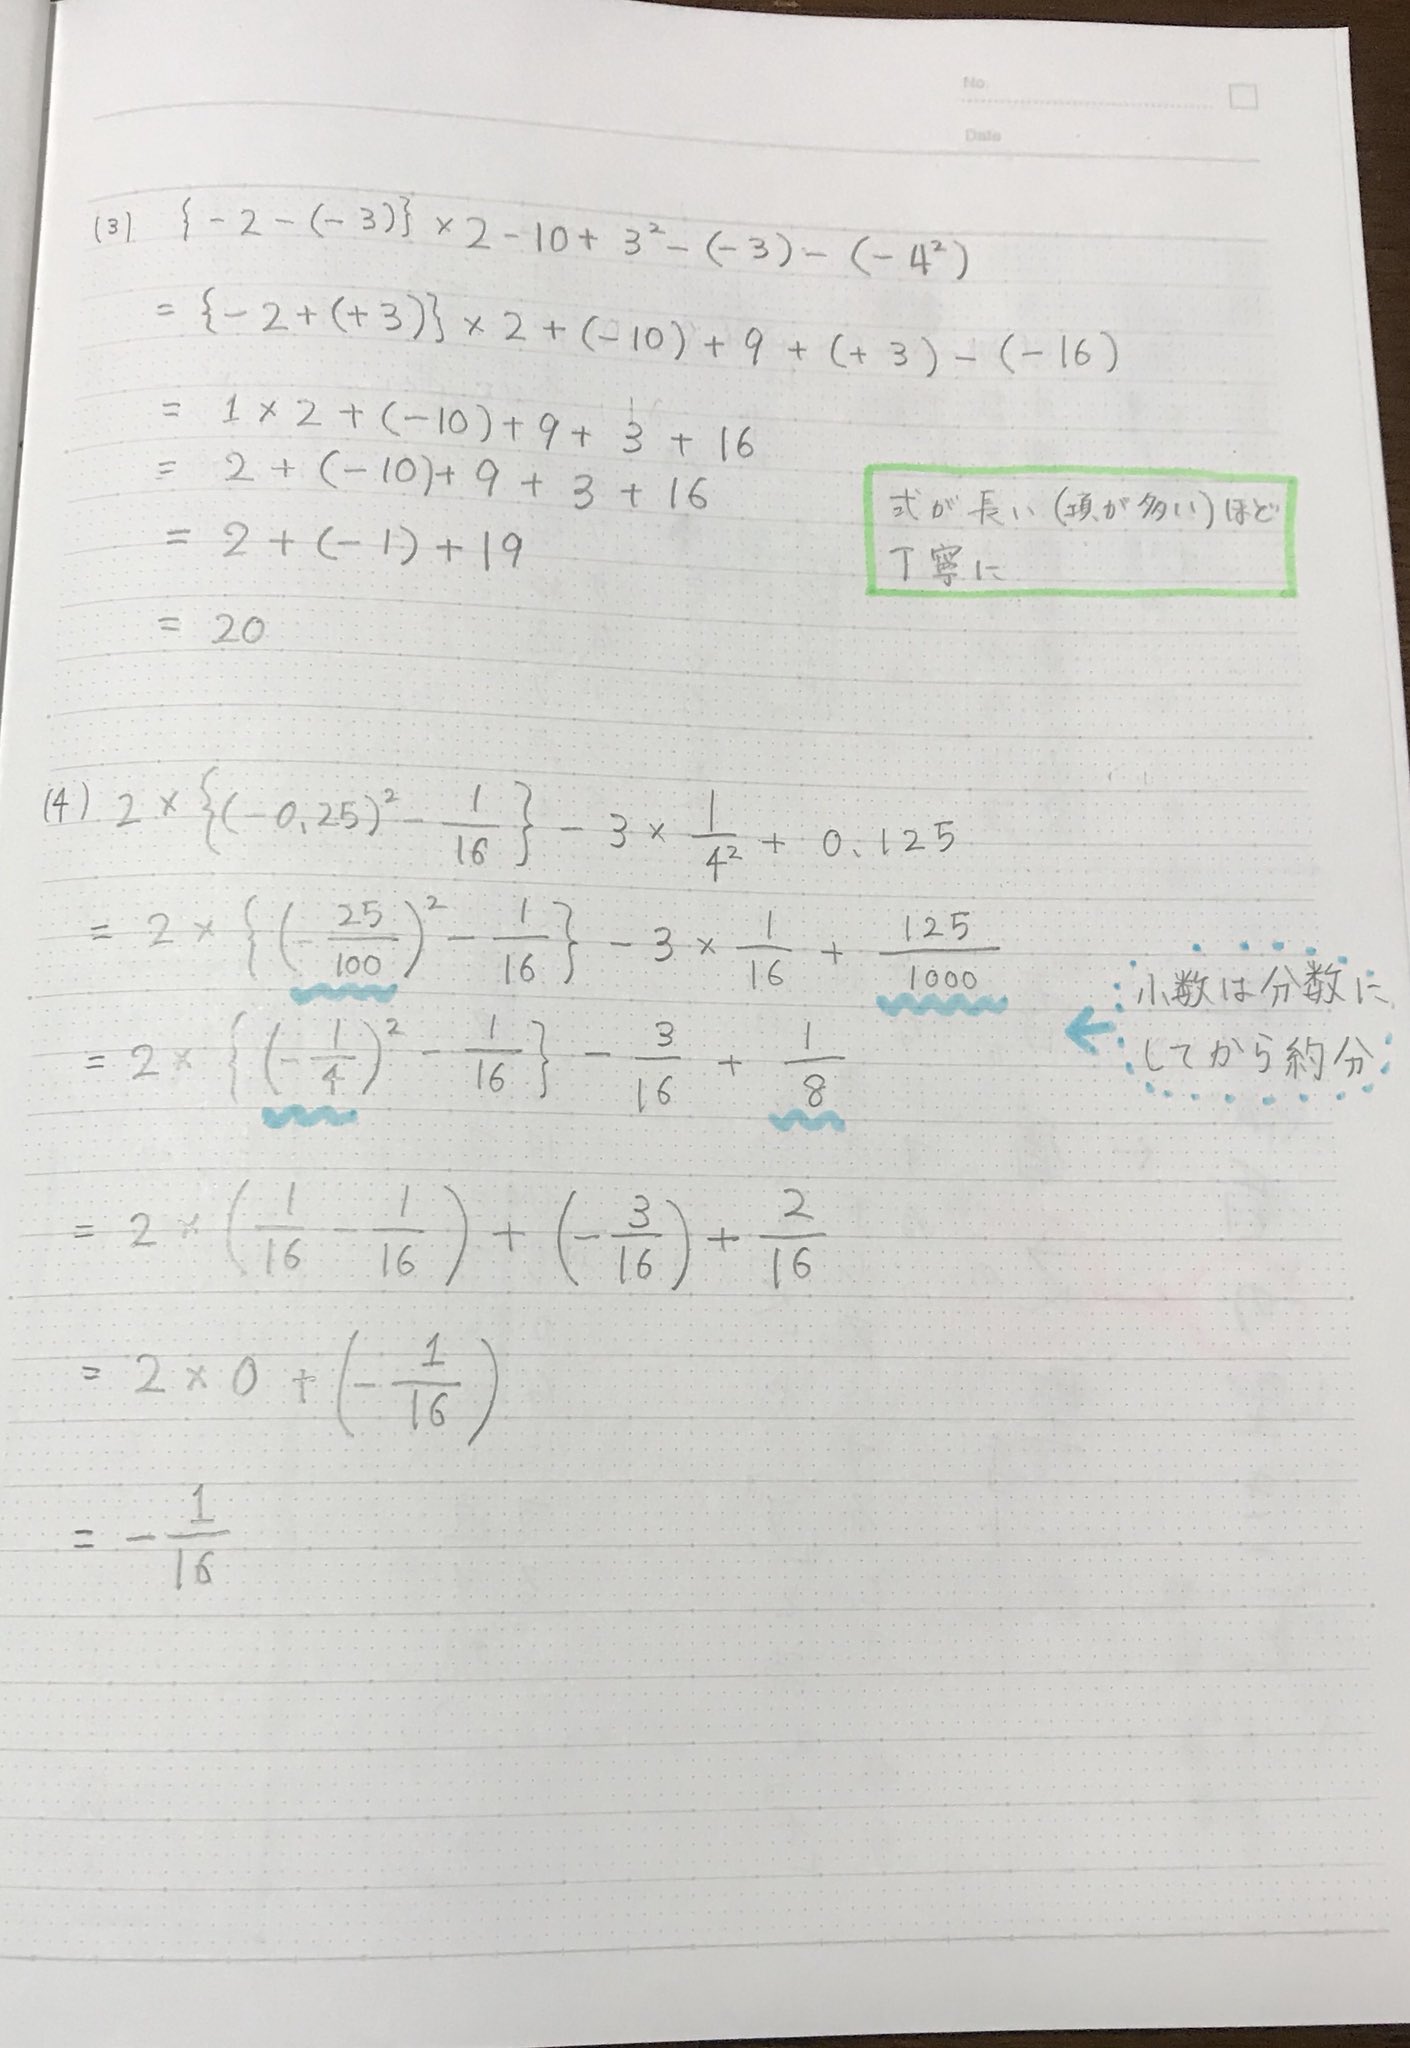 No.
Date
(3) {-2-(-3)}×2-10+3²-(-3)-(-4²)
={-2+(+3)}×2+(-10)+9+(+3)-(-16)
=1×2+(-10)+9+3+16
=2+(-10)+9+3+16
=2+(-1)+19
=20
式が長い(項が多い)ほど
丁寧に
(4) 2×{(-0.25)²-1/16}-3×1/4²+0.125
=2×{(-25/100)²-1/16}-3×1/16+125/1000
=2×{(-1/4)²-1/16}-3/16+1/8
小数は分数に
してから約分
=2×(1/16-1/16)+(-3/16)+2/16
=2×0+(-1/16)
=-1/16